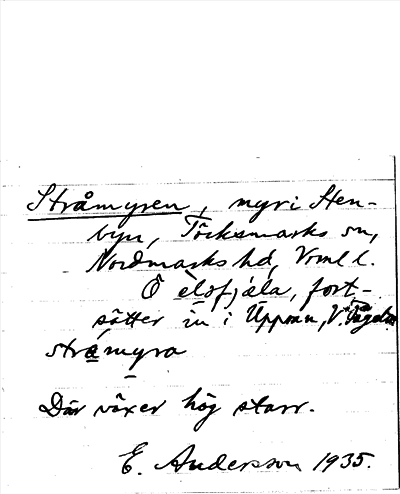 Stråmyren, myr i Sten-
byn, Töcksmarks sn,
Nordmarks hd, Vrml l.
Ö elofjäla, fort-
sätter in i Uppman, V.
stråmyra
Där växer hög starr.
E. Anderson 1935.